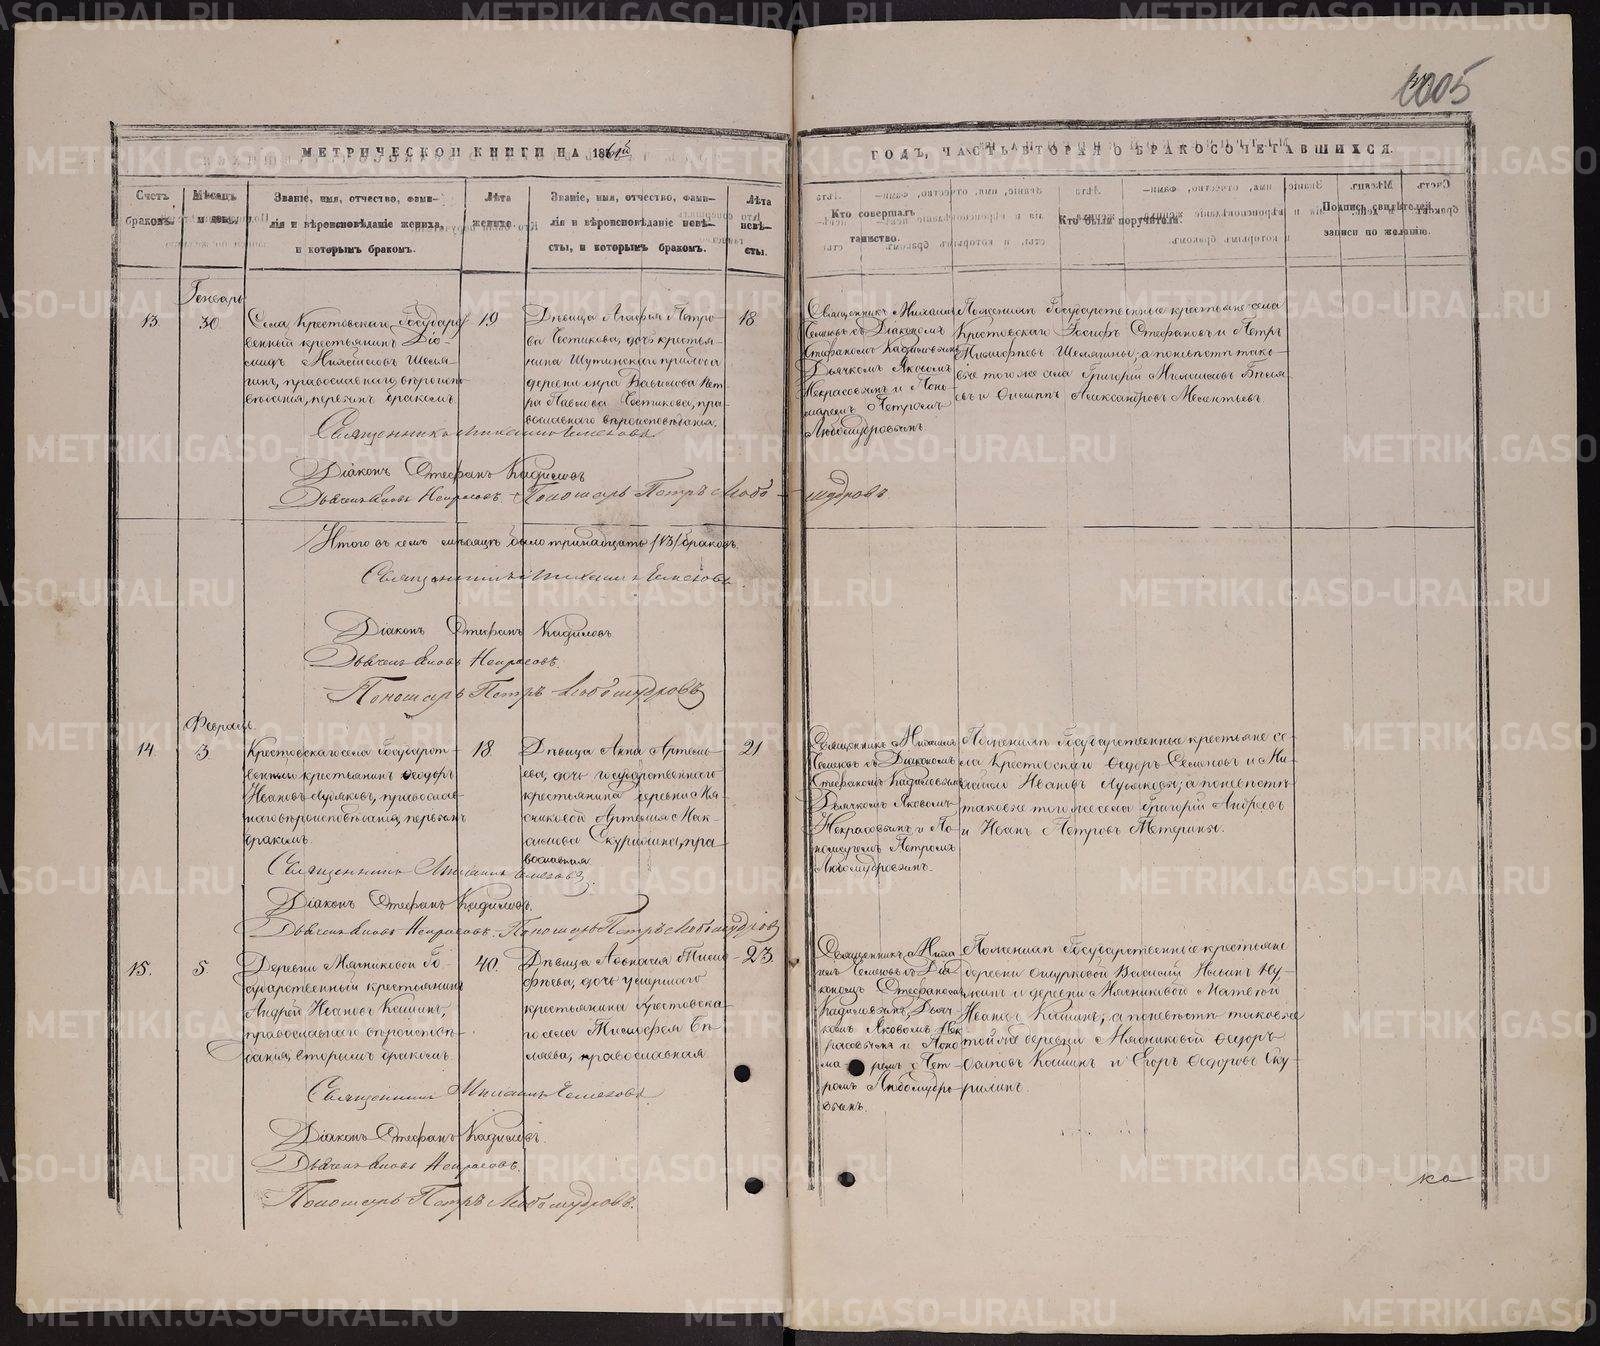 1005
МЕТРИЧЕСКОЙ КНИГИ НА 1861й
ГОДЪ, ЧАСТЬ ВТОРАЯ О БРАКОСОЧЕТАВШИХСЯ.
Счетъ браковъ.
Мѣсяцъ и день.
Званіе, имя, отчество, фами-
лія и вѣроисповѣданіе жениха,
и которымъ бракомъ.
Лѣта
жениха.
Званіе, имя, отчество, фами-
лія и вѣроисповѣданіе невѣ-
сты, и которымъ бракомъ.
Лѣта
невѣ-
сты.
Кто совершалъ
таинство.
Кто были поручители.
Подпись свидѣтелей
записи по желанію.
13.
Генварь
30.
Села Крестовскаго Государст
венный крестьянинъ Діо-
мидъ Шеля-
гинъ, православнаго вѣроиспо
вѣданія, первымъ бракомъ
19
Дѣвица Агафья Петро-
ва дочь крестья-
нина Шутинскаго прихода
деревни Вавилова Пет-
ра Павлова пра-
вославнаго вѣроисповѣданія.
18.
Священникъ Михаилъ
Семеновъ съ Діакономъ
Стефаномъ Кадиловымъ
Дьячкомъ Яковомъ
Некрасовымъ и Поно-
маремъ Петромъ
Любомудровымъ.
По женихѣ Государственные крестьяне села
Крестовскаго Іосифъ Стефановъ и Петръ
Никифоровъ Шелягины; а по невѣстѣ тако-
вые того же села Григорій
и Александровъ
Священникъ Михаилъ Семеновъ
Діаконъ Стефанъ Кадиловъ
Дьячекъ Яковъ Некрасовъ. Пономарь Петръ Любо-
мудровъ
Итого въ семъ мѣсяцѣ было тринадцать /13/ браковъ.
Священникъ Михаилъ Семеновъ
Діаконъ Стефанъ Кадиловъ
Дьячекъ Яковъ Некрасовъ.
Пономарь Петръ Любомудровъ
14.
Февраль.
3.
Крестовскаго села Государст-
венный крестьянинъ Ѳеодоръ
Ивановъ православ-
наго вѣроисповѣданія, первымъ
бракомъ.
18.
Дѣвица Анна Артемь-
ева, дочь государственнаго
крестьянина деревни Мя-
сниковой Артемія Мак-
симова Скурихина, пра-
вославная
21
Священникъ Михаилъ
Семеновъ съ Діакономъ
Стефаномъ Кадиловымъ
Дьячкомъ Яковомъ
Некрасовымъ и По-
номаремъ Петромъ
Любомудровымъ.
По женихѣ Государственные крестьяне се-
ла Крестовскаго Ѳедоръ Семеновъ и Ни-
колай Ивановъ а по невѣстѣ
таковые того же села Григорій Андреевъ
и Иванъ Петровъ
Священникъ Михаилъ Семеновъ
Діаконъ Стефанъ Кадиловъ.
Дьячекъ Яковъ Некрасовъ. Пономарь Петръ Любомудровъ
15.
5.
Деревни Мясниковой Го-
сударственный крестьянинъ
Андрей Ивановъ Кошинъ,
православнаго вѣроисповѣ-
данія, вторымъ бракомъ.
40.
Дѣвица Аѳанасія Тимо-
фѣева, дочь умершаго
крестьянина Крестовска-
го села Тимофея Бѣ-
ляева, православная
23
Священникъ Миха-
илъ Семеновъ съ Діа-
кономъ Стефаномъ
Кадиловымъ, Дьяч-
комъ Яковомъ Нек-
расовымъ и Поно-
маремъ Пет-
ромъ Любомудро-
вымъ.
По женихѣ Государственные крестьяне
деревни Василій
и деревни Мясниковой Матвей
Ивановъ Кошинъ; а по невѣстѣ таковые
той же деревни Мясниковой Ѳедоръ
Осиповъ Кошинъ и Егоръ Ѳедоровъ Ску-
рихинъ.
Священникъ Михаилъ Семеновъ
Діаконъ Стефанъ Кадиловъ.
Дьячекъ Яковъ Некрасовъ.
Пономарь Петръ Любомудровъ.
ка
METRIKI.GASO-URAL.RU